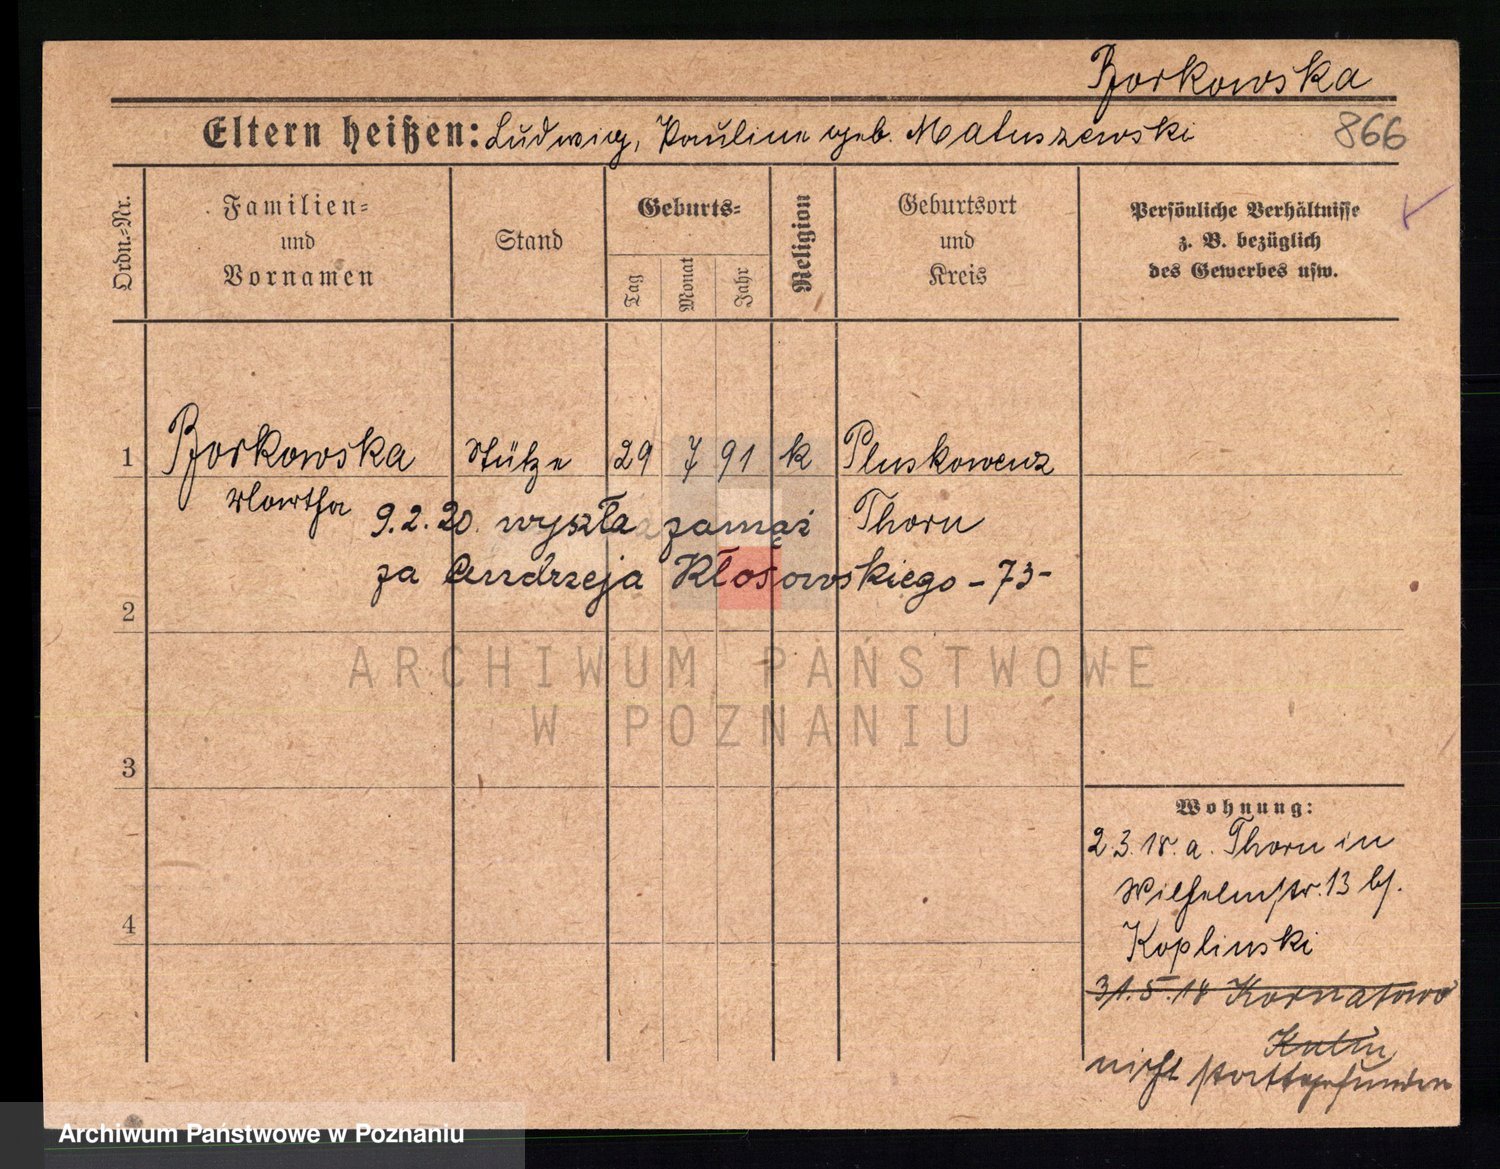 Borkowska
Eltern heißen: Ludwig, Pauline geb. Matuszewski
866
Ordn.-Nr.
Familien-
und
Vornamen
Stand
Geburts-
Tag
Monat
Jahr
Religion
Geburtsort
und
Kreis
Persönliche Verhältnisse
z. B. bezüglich
des Gewerbes usw.
1 Borkowska Stütze 29 7 91 k Pluskowenz
Martha
Thorn
9.2.20. wyszła zamąż
za Andrzeja Kłosowskiego - 73-
2
ARCHIWUM PAŃSTWOWE
W POZNANIU
3
Wohnung:
2.3.18. a. Thorn in
Wilhelmstr. 13 bf.
Koplinski
4
31.5.18 Kornatowo
Kulm
nicht stattgefunden
Archiwum Państwowe w Poznaniu